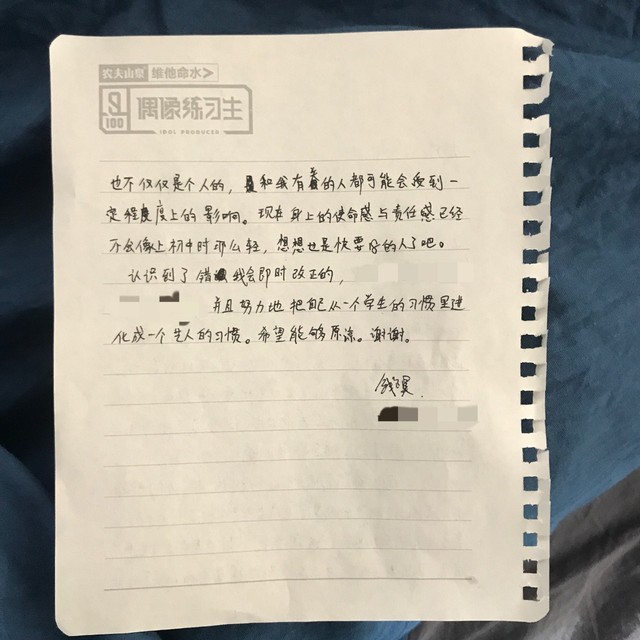 农夫山泉 维他命水
100 偶像练习生
IDOL PRODUCER
也不仅仅是个人的，和我有着的人都可能会受到一
定程度上的影响。现在身上的使命感与责任感已经
不会像上初中时那么轻，想想也是快要好的人了吧。
认识到了错 我会即时改正的，
并且努力地把自己从一个学生的习惯里进
化成一个生人的习惯。希望能够原谅。谢谢。